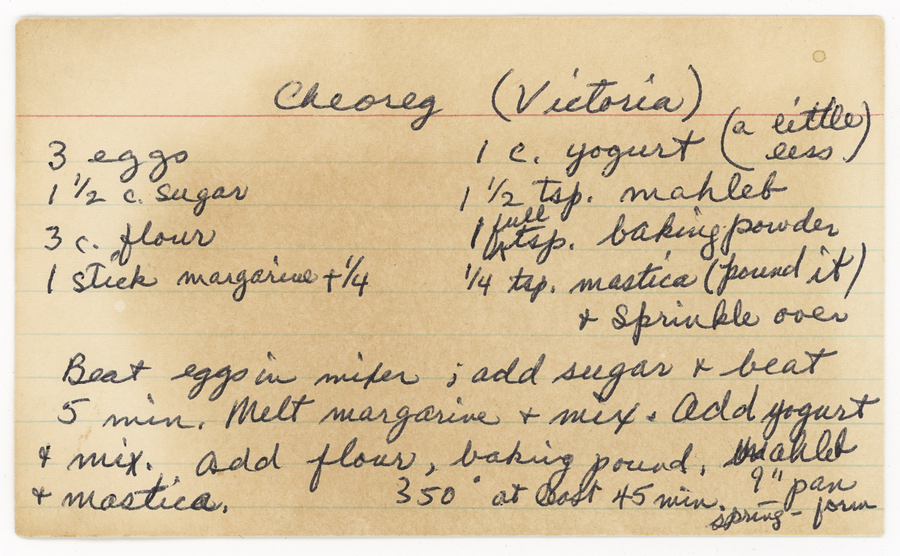 Cheoreg (Victoria)
3 eggs
1 1/2 c. sugar
3 c. flour
1 stick margarine + 1/4
1 c. yogurt (a little less)
1 1/2 tsp. mahleb
1 full tsp. baking powder
1/4 tsp. mastica (pound it)
& sprinkle over
Beat eggs in mixer ; add sugar & beat
5 min. Melt margarine & mix. Add yogurt
& mix. Add flour, baking pound, mahleb
& mastica. 350° at least 45 min. 9" pan
spring-form